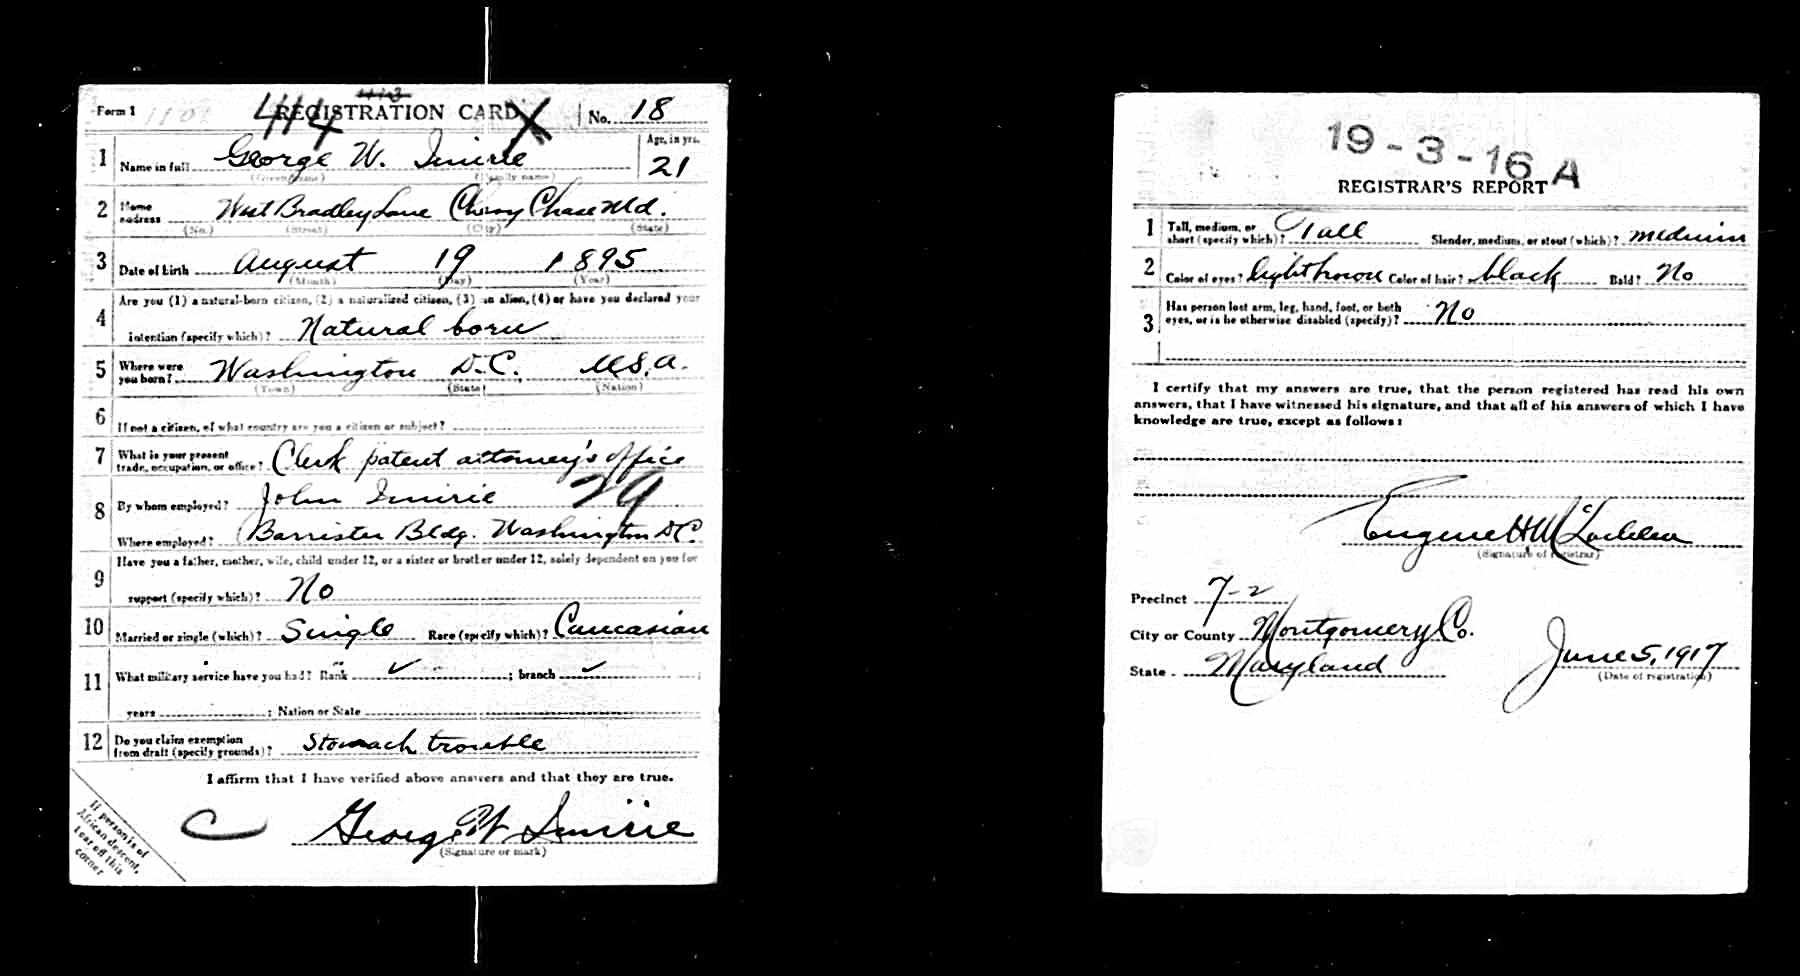 Form 1 REGISTRATION CARD No. 18
414 413 X
1 Name in full George W. Imirie Age, in yrs. 21
(Given name) (Family name)
2 Home address West Bradley Lane Chevy Chase Md.
(No.) (Street) (City) (State)
3 Date of birth August 19 1895
(Month) (Day) (Year)
4 Are you (1) a natural-born citizen, (2) a naturalized citizen, (3) an alien, (4) or have you declared your
intention (specify which)? Natural born
5 Where were you born? Washington D.C. U.S.A.
(Town) (State) (Nation)
6 If not a citizen, of what country are you a citizen or subject?
7 What is your present trade, occupation, or office? Clerk patent attorney's office
8 By whom employed? John Imirie 29
Where employed? Barrister Bldg. Washington D.C.
9 Have you a father, mother, wife, child under 12, or a sister or brother under 12, solely dependent on you for
support (specify which)? No
10 Married or single (which)? Single Race (specify which)? Caucasian
11 What military service have you had? Rank ✓ ; branch ✓ ;
years ; Nation or State
12 Do you claim exemption from draft (specify grounds)? Stomach trouble
I affirm that I have verified above answers and that they are true.
C George W Imirie
(Signature or mark)
If person is of
African descent,
tear off this
corner
19-3-16 A
REGISTRAR'S REPORT
1 Tall, medium, or short (specify which)? Tall Slender, medium, or stout (which)? medium
2 Color of eyes? light brown Color of hair? black Bald? No
3 Has person lost arm, leg, hand, foot, or both
eyes, or is he otherwise disabled (specify)? No
I certify that my answers are true, that the person registered has read his own
answers, that I have witnessed his signature, and that all of his answers of which I have
knowledge are true, except as follows:
Eugene H Mc
(Signature of registrar)
Precinct 7-2
City or County Montgomery Co.
State Maryland June 5, 1917
(Date of registration)